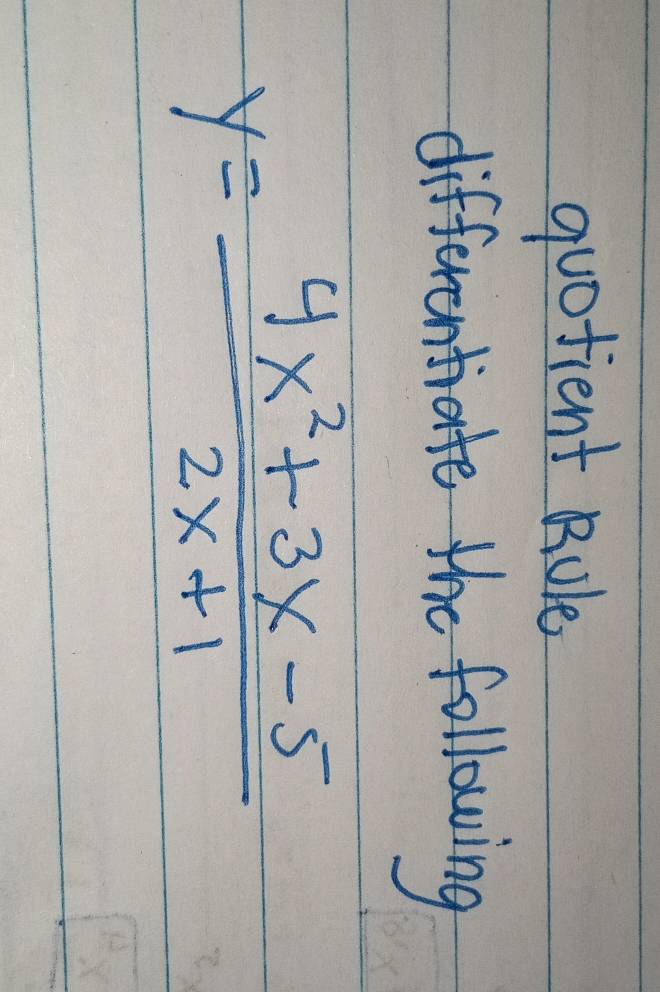 quotient Rule
differentiate the following
y = 4x² + 3x - 5
2x + 1